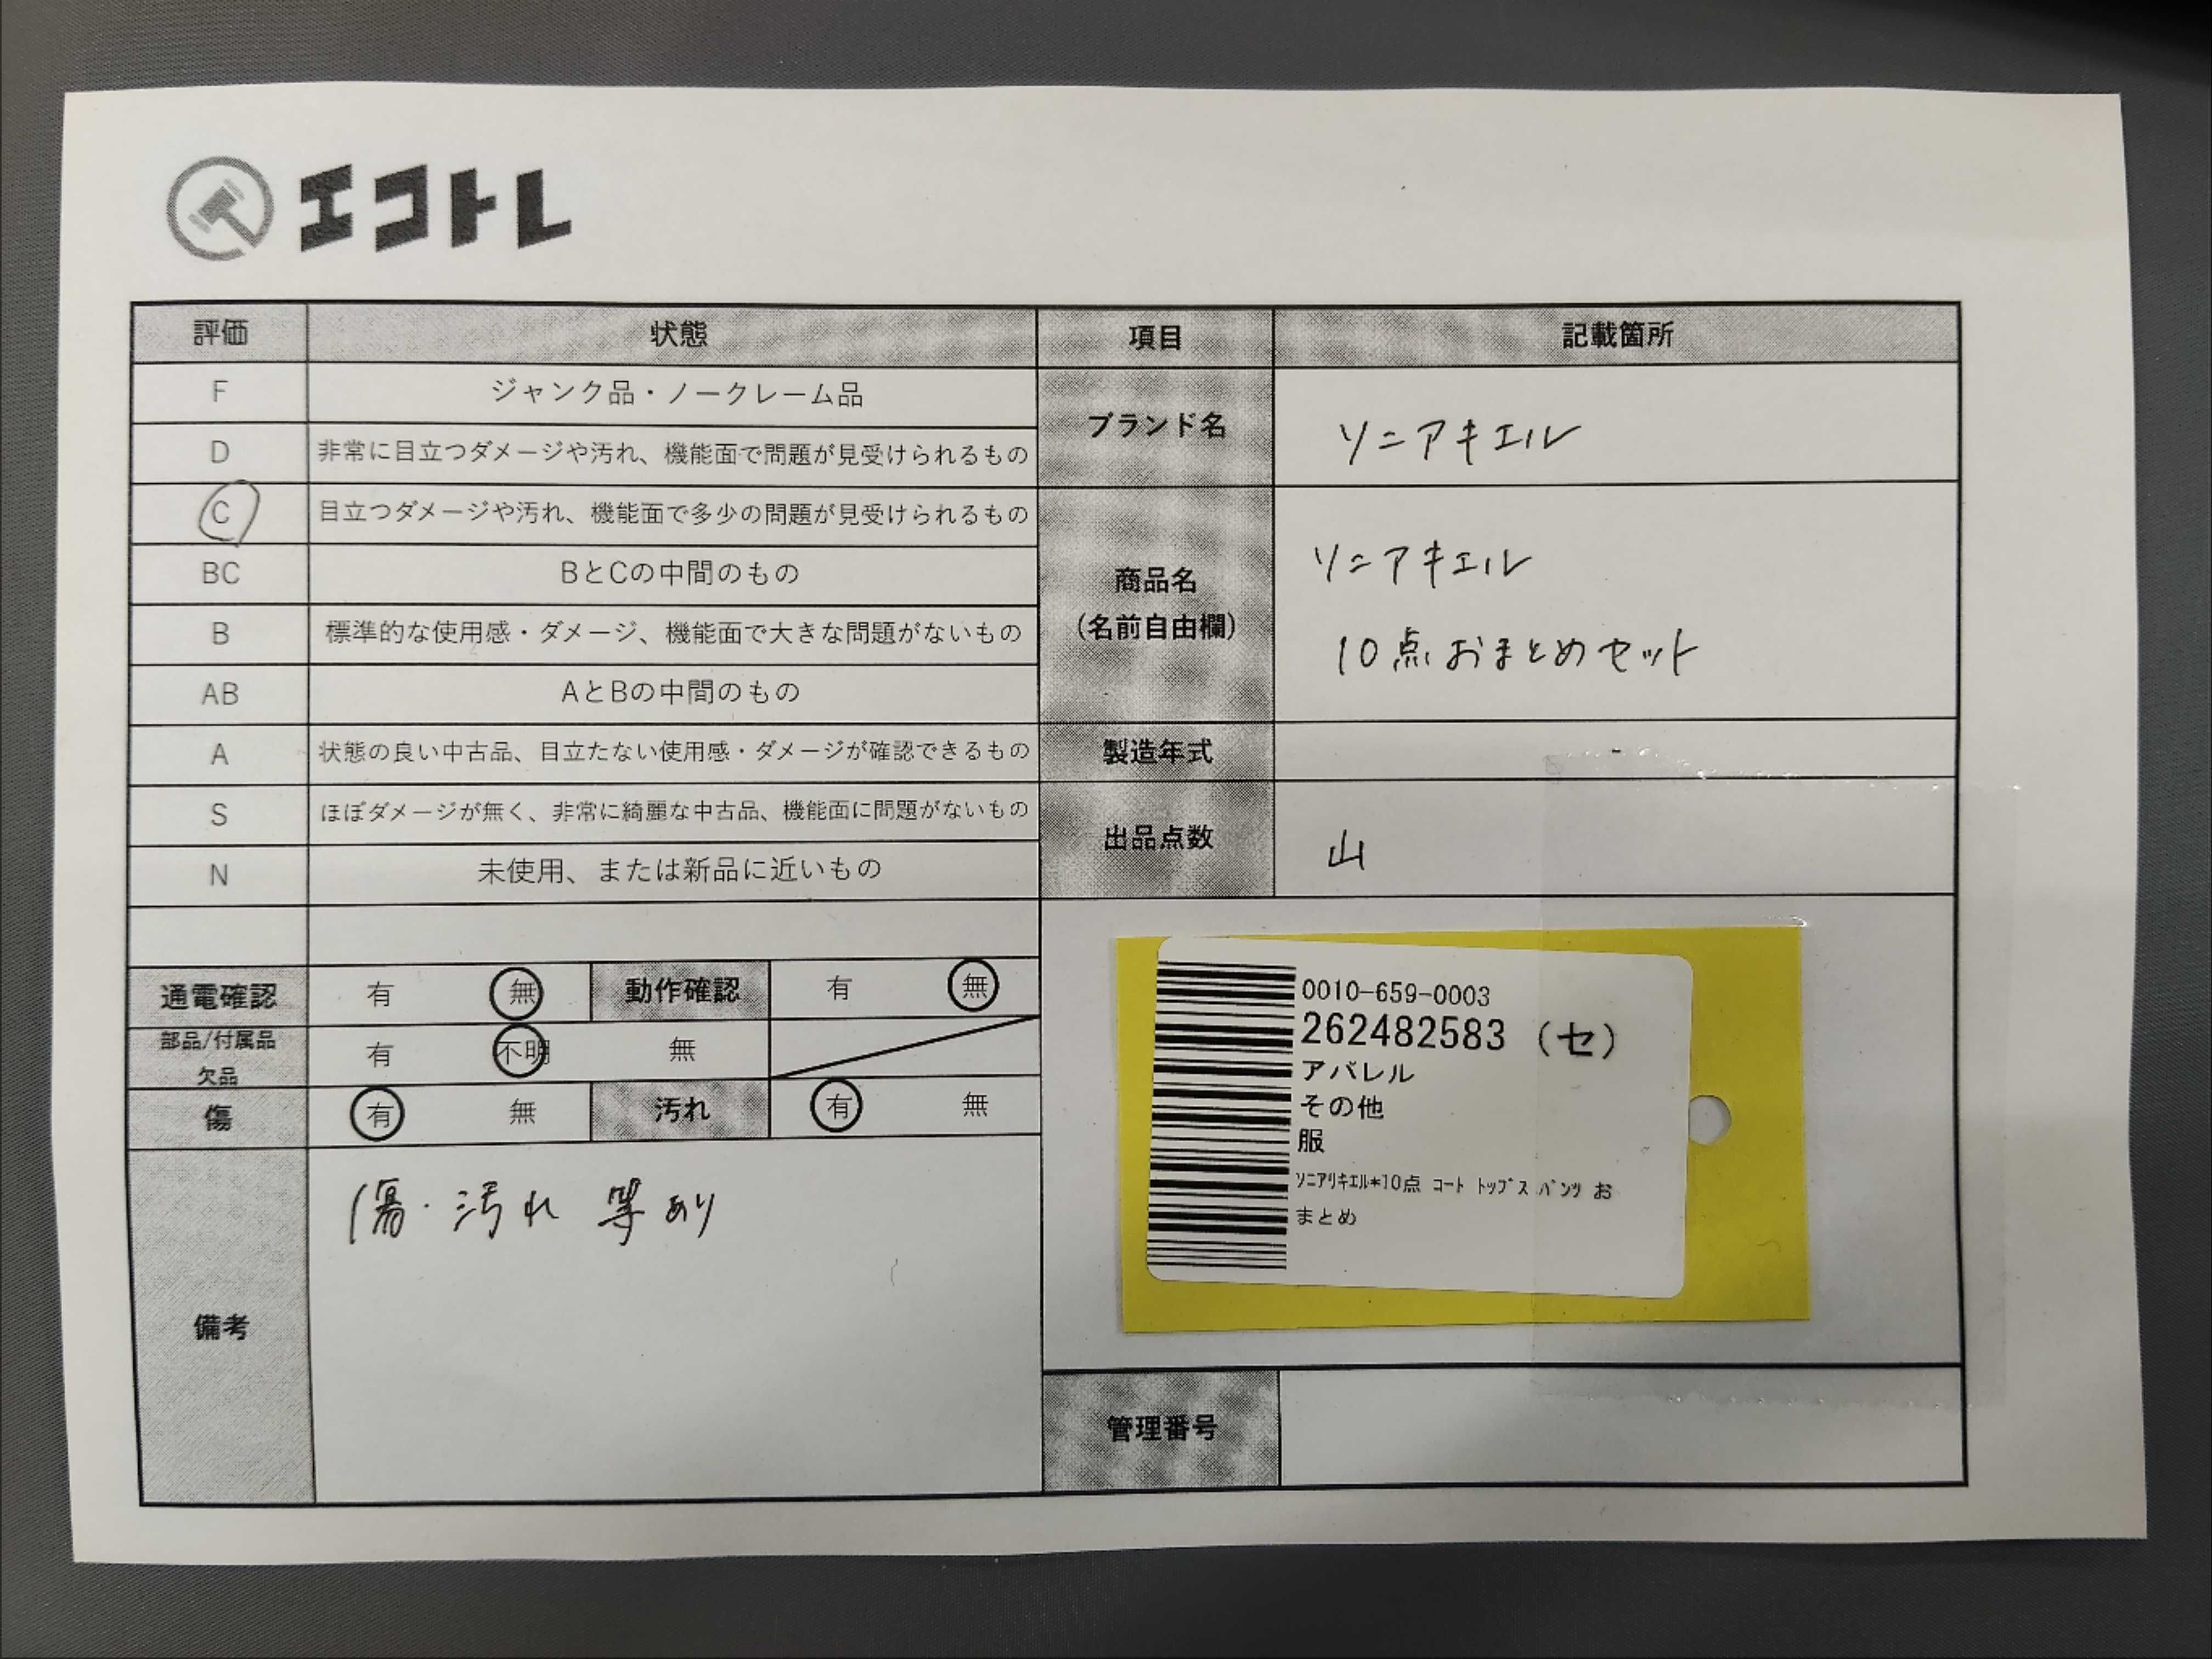 エコトレ
評価 状態 項目 記載箇所
F ジャンク品・ノークレーム品
D 非常に目立つダメージや汚れ、機能面で問題が見受けられるもの
C 目立つダメージや汚れ、機能面で多少の問題が見受けられるもの
BC BとCの中間のもの
B 標準的な使用感・ダメージ、機能面で大きな問題がないもの
AB AとBの中間のもの
A 状態の良い中古品、目立たない使用感・ダメージが確認できるもの
S ほぼダメージが無く、非常に綺麗な中古品、機能面に問題がないもの
N 未使用、または新品に近いもの
ブランド名 ソニアキエル
商品名
(名前自由欄)
ソニアキエル
10点おまとめセット
製造年式 -
出品点数 山
通電確認 有 無 動作確認 有 無
部品/付属品
欠品
有 不明 無
傷 有 無 汚れ 有 無
備考 傷・汚れ 等あり
0010-659-0003
262482583 (セ)
アパレル
その他
服
ソニアリキエル*10点 コート トップス パンツ お
まとめ
管理番号